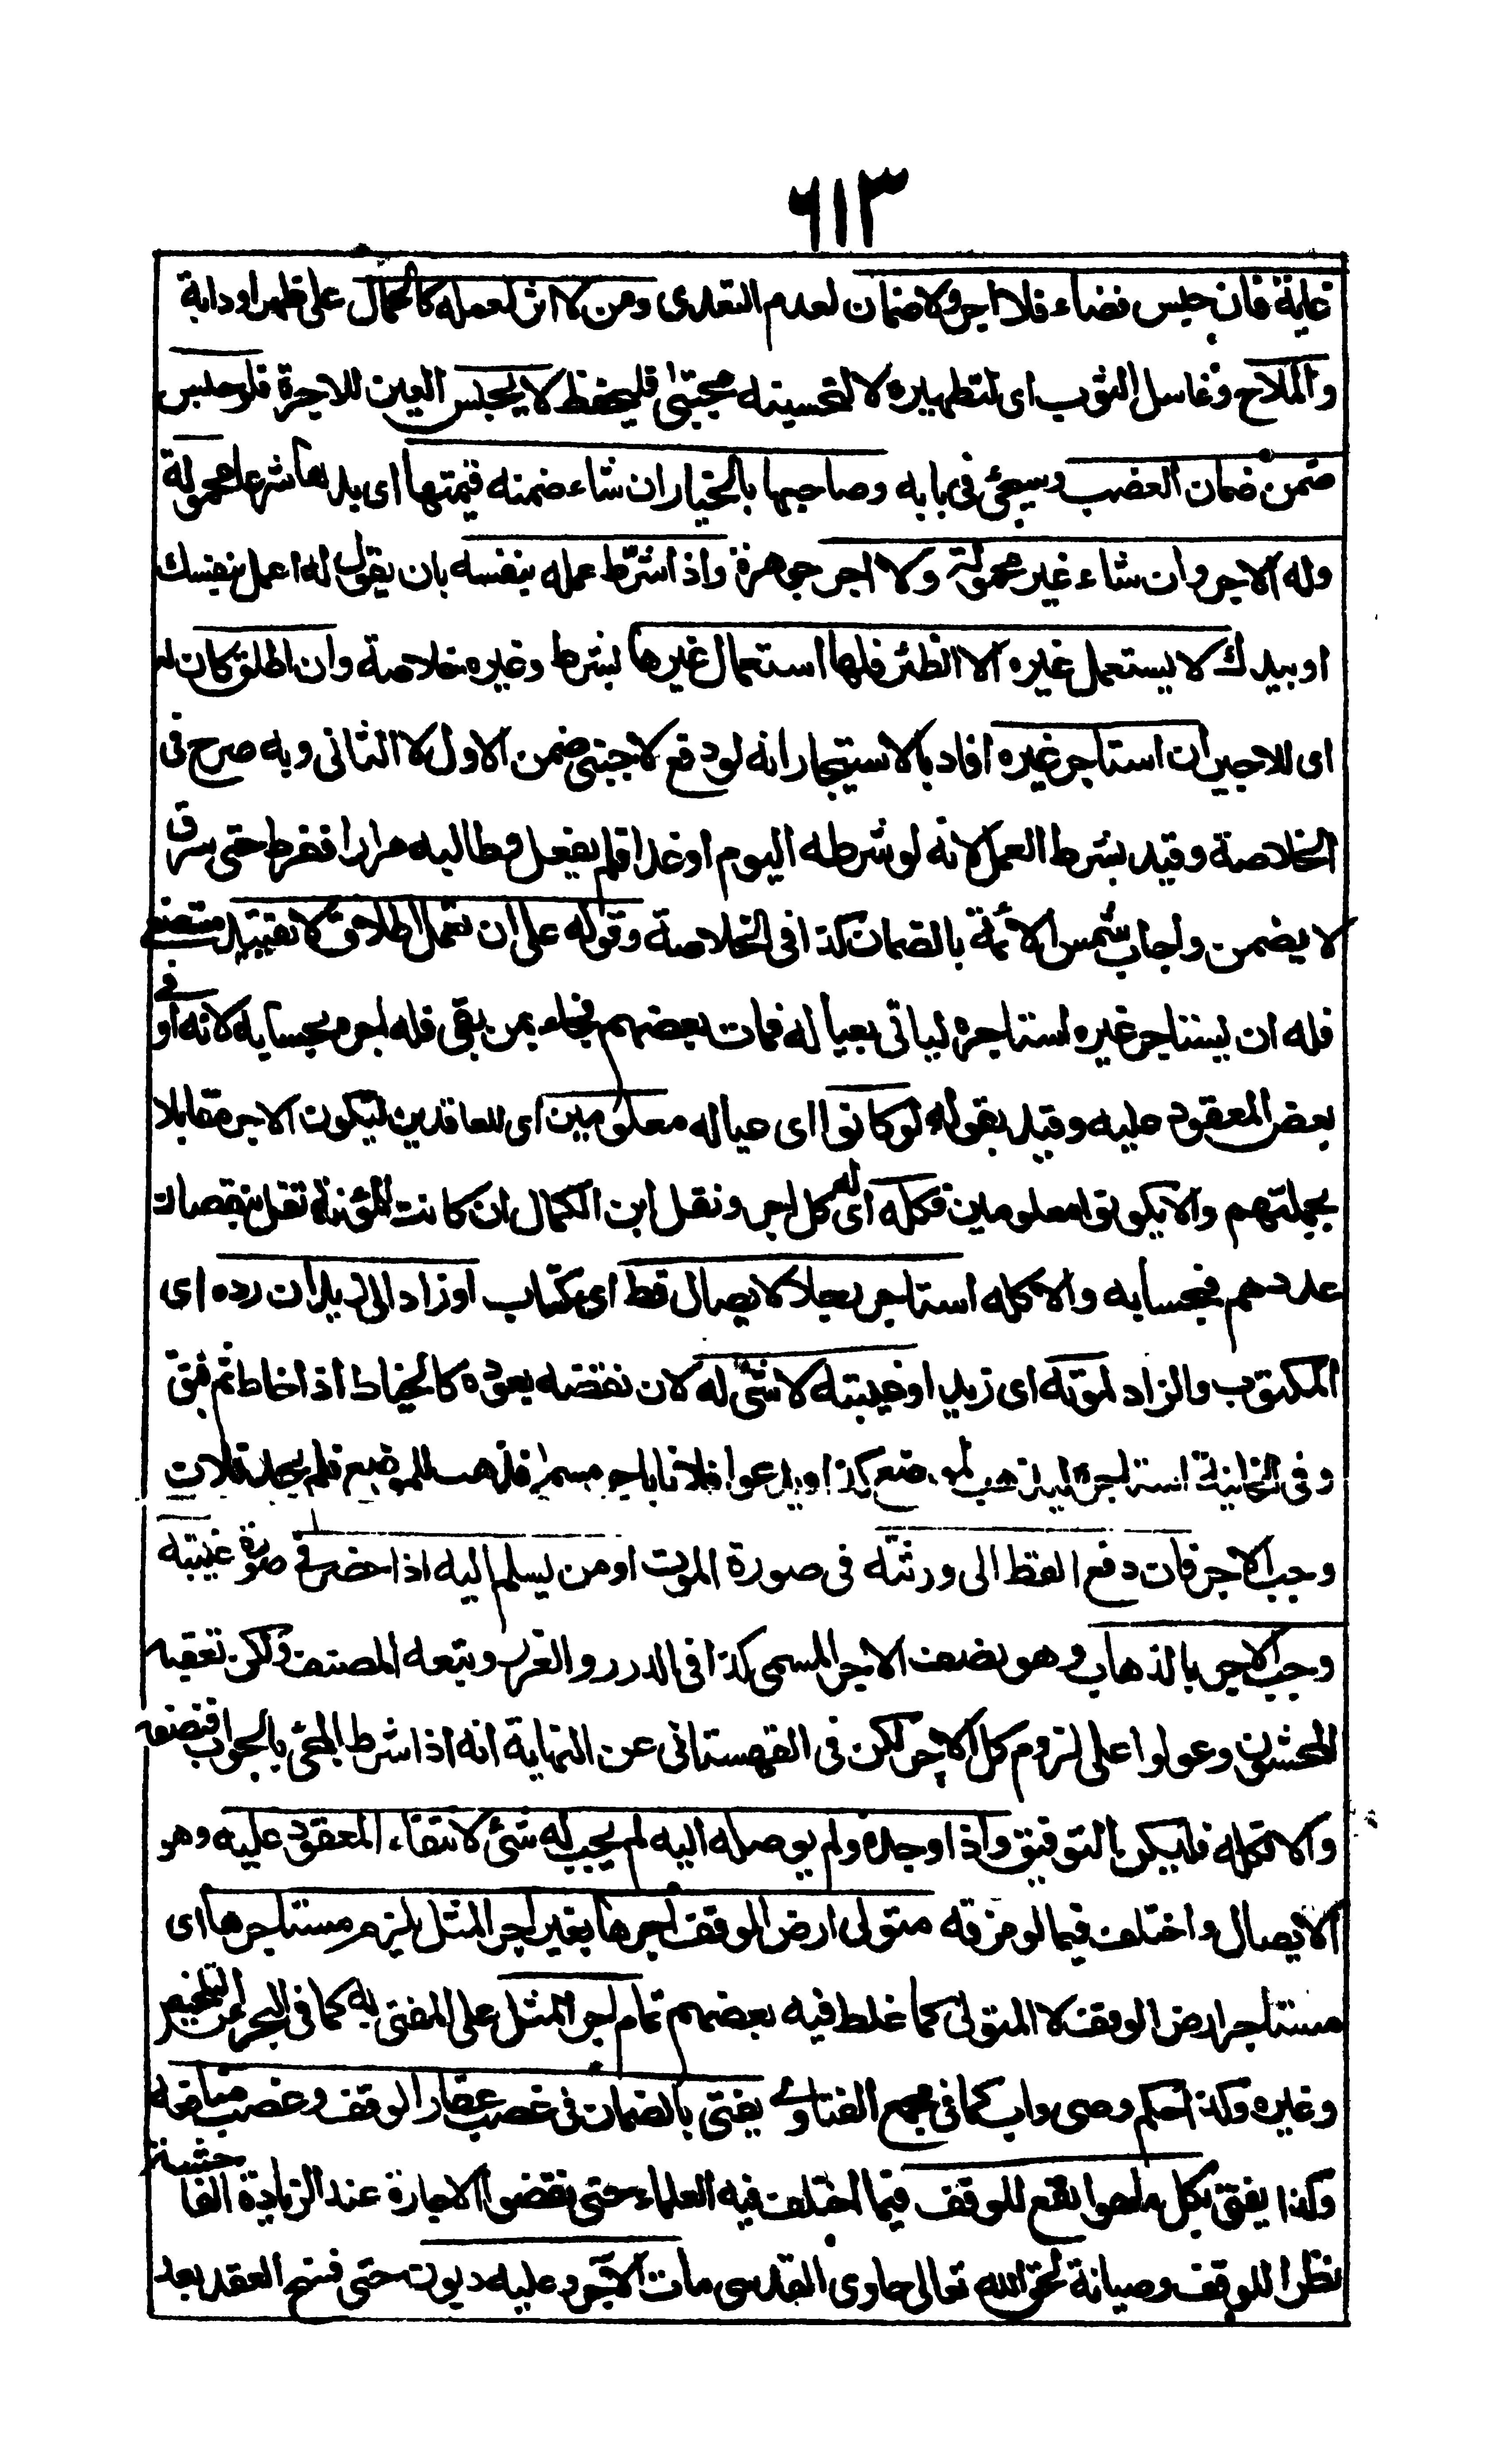 ٦١٣
غاية فان حبس فضاء فلا اجر ولا ضمان لعدم التعدى ومن لا اثر لعمله كالحمال على ظهر او دابة
والملاح وغاسل الثوب اى لتطهيره لا لتحسينه مجتبى فليحفظ لا يحبس العين للاجرة فلو حبس
ضمن ضمان الغصب وسيجئ فى بابه وصاحبها بالخيار ان شاء ضمنه قيمتها اى بدلها شرعا محمولة
وله الاجر وان شاء غير محمولة ولا اجر جوهرة واذا شرط عمله بنفسه بان يقول له اعمل بنفسك
او بيدك لا يستعمل غيره الا الظئر فلها استعمال غيرها بشرط وغيره خلاصة وان اطلق كان له
اى للاجير ان استاجر غيره افاد بالاستيجار انه لو دفع لاجنبى ضمن الاول لا الثانى وبه صرح فى
الخلاصة وقيد بشرط العمل لانه لو شرطه اليوم او غدا فلم يفعل وطالبه مرارا ففرط حتى سرق
لا يضمن واجاب شمس الائمة بالضمان كذا فى الخلاصة وقوله على ان تعمل اطلاق لا تقييد مستصفى
فله ان يستاجر غيره استاجره لياتى بعياله فمات بعضهم فجاء بمن بقى فله اجره بحسابه لانه اوفى
بعض المعقود عليه وقيد بقوله لو كانوا اى عياله معلومين اى للعاقدين ليكون الاجر مقابلا
بجملتهم والا يكونوا معلومين فكله اى له كل اجر ونقل ابن الكمال ان كانت المؤنة تقل بنقصان
عددهم فبحسابه والا فكله استاجر رجلا لايصال قط اى كتاب او زاد الى زيد ان رده اى
المكتوب والزاد لموته اى زيد او غيبته لا شئ له لان نقضه بعوده كالخياط اذا خاط ثم فتق
وفى الخانية استاجره ليذهب لموضع كذا ويدعوا فلانا باجر مسمى فذهب للموضع فلم يجد فلانا
وجب الاجر فان دفع القط الى ورثته فى صورة الموت او من يسلم اليه اذا حضر فى صورة غيبته
وجب الاجر بالذهاب وهو نصف الاجر المسمى كذا فى الدرر والغرر وتبعه المصنف ولكن تعقبه
المحشون وعولوا على لزوم كل الاجر لكن فى القهستانى عن النهاية انه اذا شرط المجئ بالجواب فنصفه
والا فكله فليكن بالتوفيق واذا وجده ولم يوصله اليه لم يجب له شئ لانتفاء المعقود عليه وهو
الايصال واختلف فيما لو مزقه متولى ارض الوقف اجرها بغير اجر المثل يلزم مستاجرها اى
مستاجر ارض الوقف لا المتولى كما غلط فيه بعضهم تمام اجر المثل على المفتى به كما فى البحر عن التلخيص
وغيره وكذا حكم وصى واب كما فى مجمع الفتاوى يفتى بالضمان فى غصب عقار الوقف وغصب منافعه
وكذا يفتى بكل ما هو انفع للوقف فيما اختلف فيه العلماء حتى نقضوا الاجارة عند الزيادة الفاحشة
نظرا للوقف وصيانة لحق الله تعالى حاوى القدسى مات الآجر وعليه ديون حتى فسخ العقد بعد